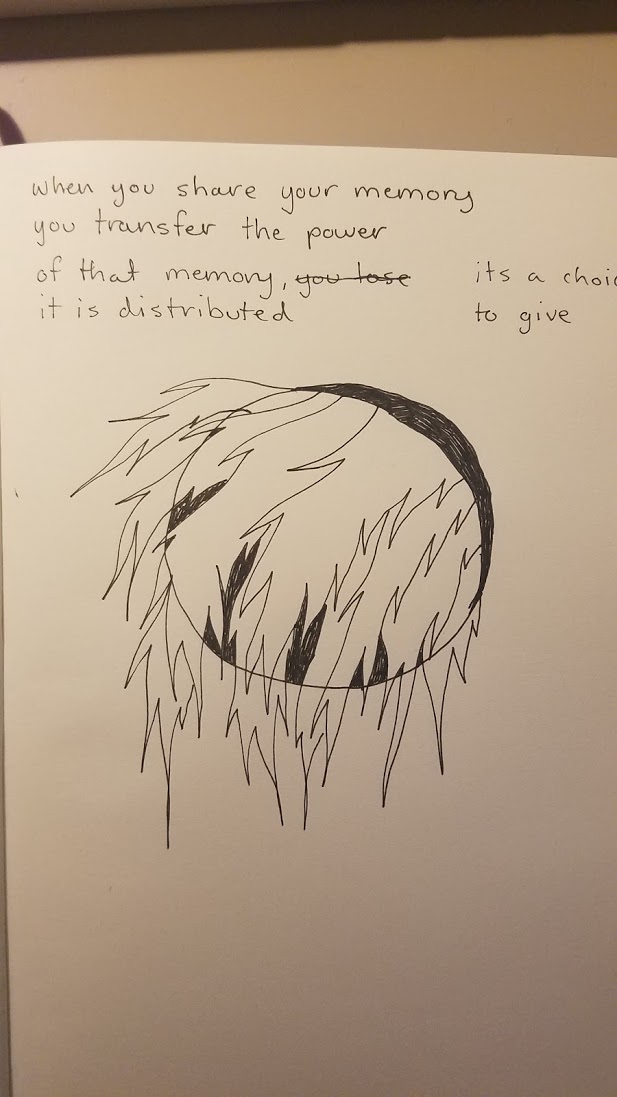 when you share your memory
you transfer the power
of that memory, you lose
it is distributed
its a choic
to give